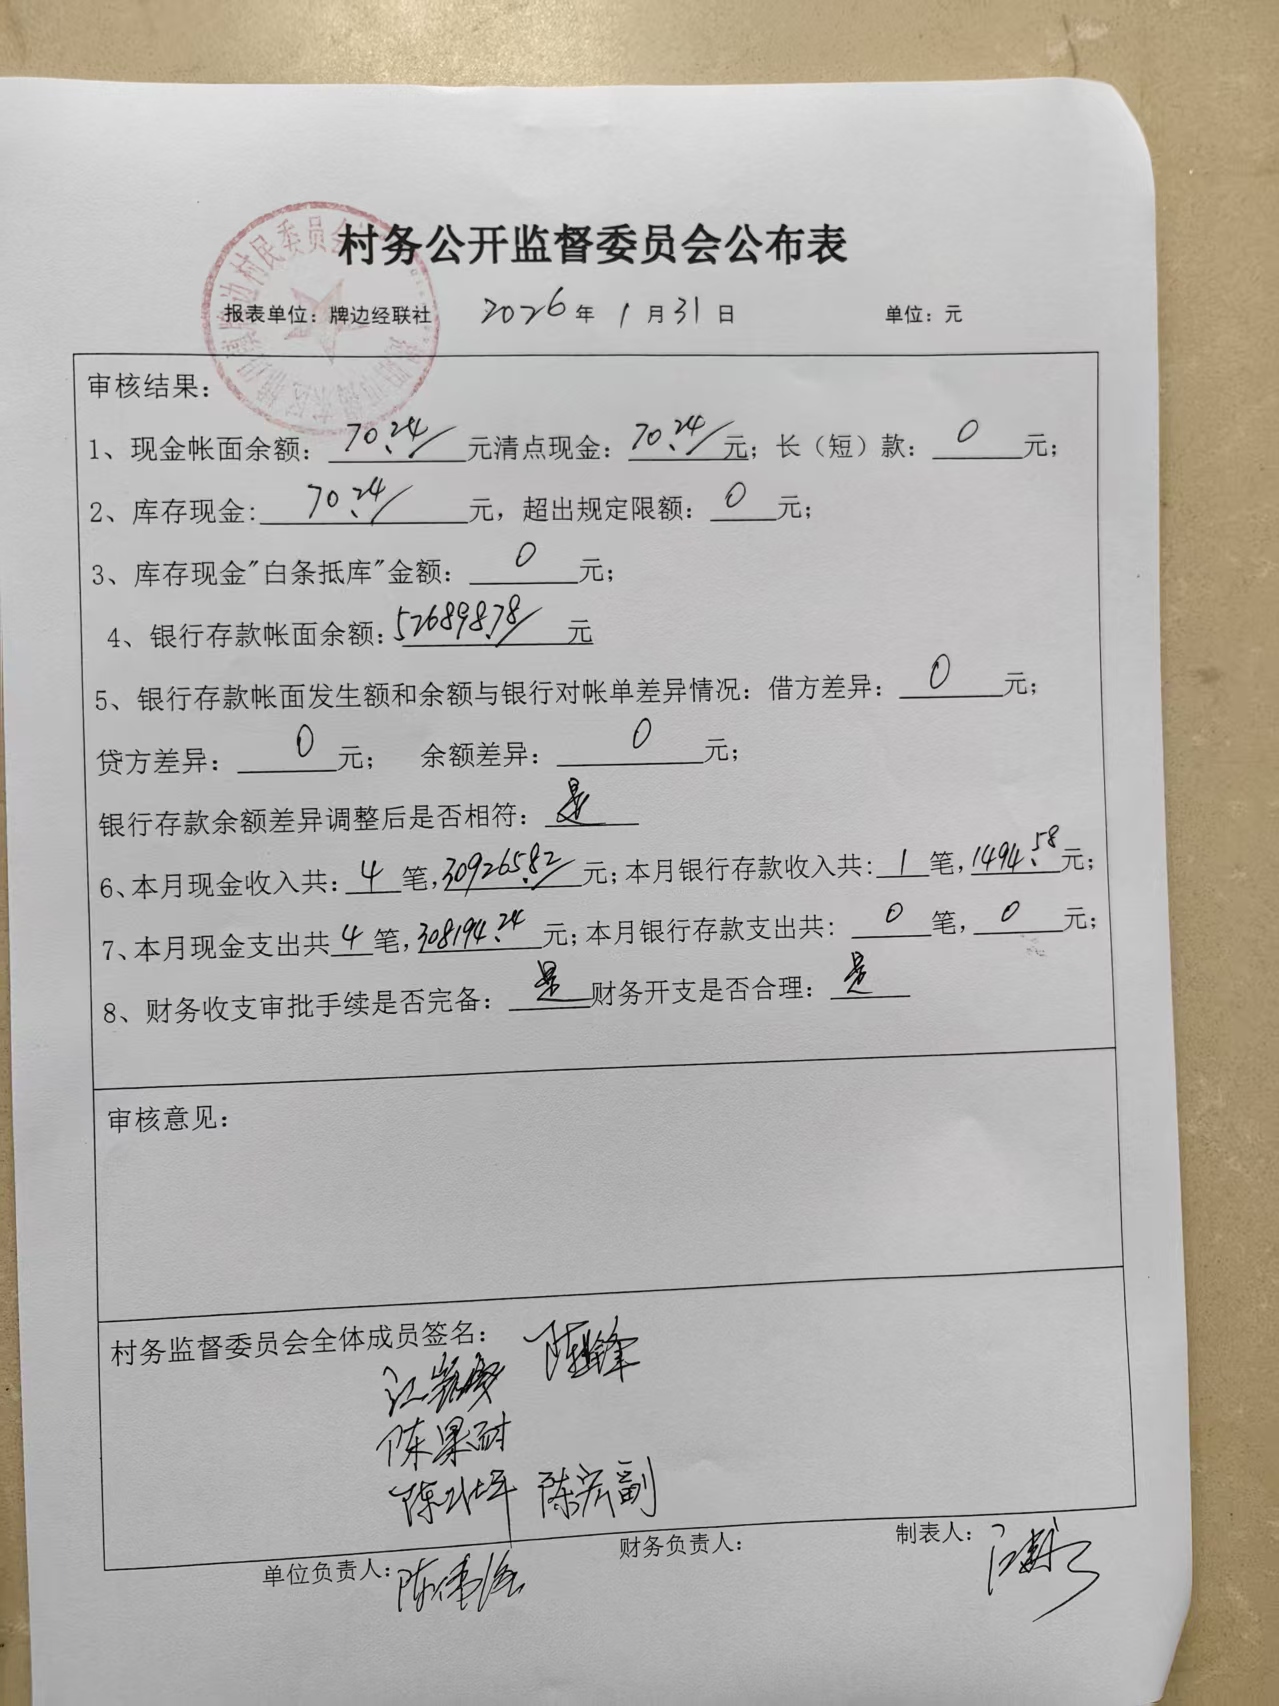 村务公开监督委员会公布表
报表单位：牌边经联社 2026年 1月31日 单位：元
审核结果：
1、现金帐面余额：70.24元清点现金：70.24元；长（短）款：0元；
2、库存现金：70.24元，超出规定限额：0元；
3、库存现金"白条抵库"金额：0元；
4、银行存款帐面余额：526898.78元
5、银行存款帐面发生额和余额与银行对帐单差异情况：借方差异：0元；
贷方差异：0元； 余额差异：0元；
银行存款余额差异调整后是否相符：是
6、本月现金收入共：4笔，元；本月银行存款收入共：1笔，1494.58元；
7、本月现金支出共4笔，308194.24元；本月银行存款支出共：0笔，0元；
8、财务收支审批手续是否完备：是财务开支是否合理：是
审核意见：
村务监督委员会全体成员签名：
陈果耐
陈宏副
单位负责人：陈伟 财务负责人： 制表人：